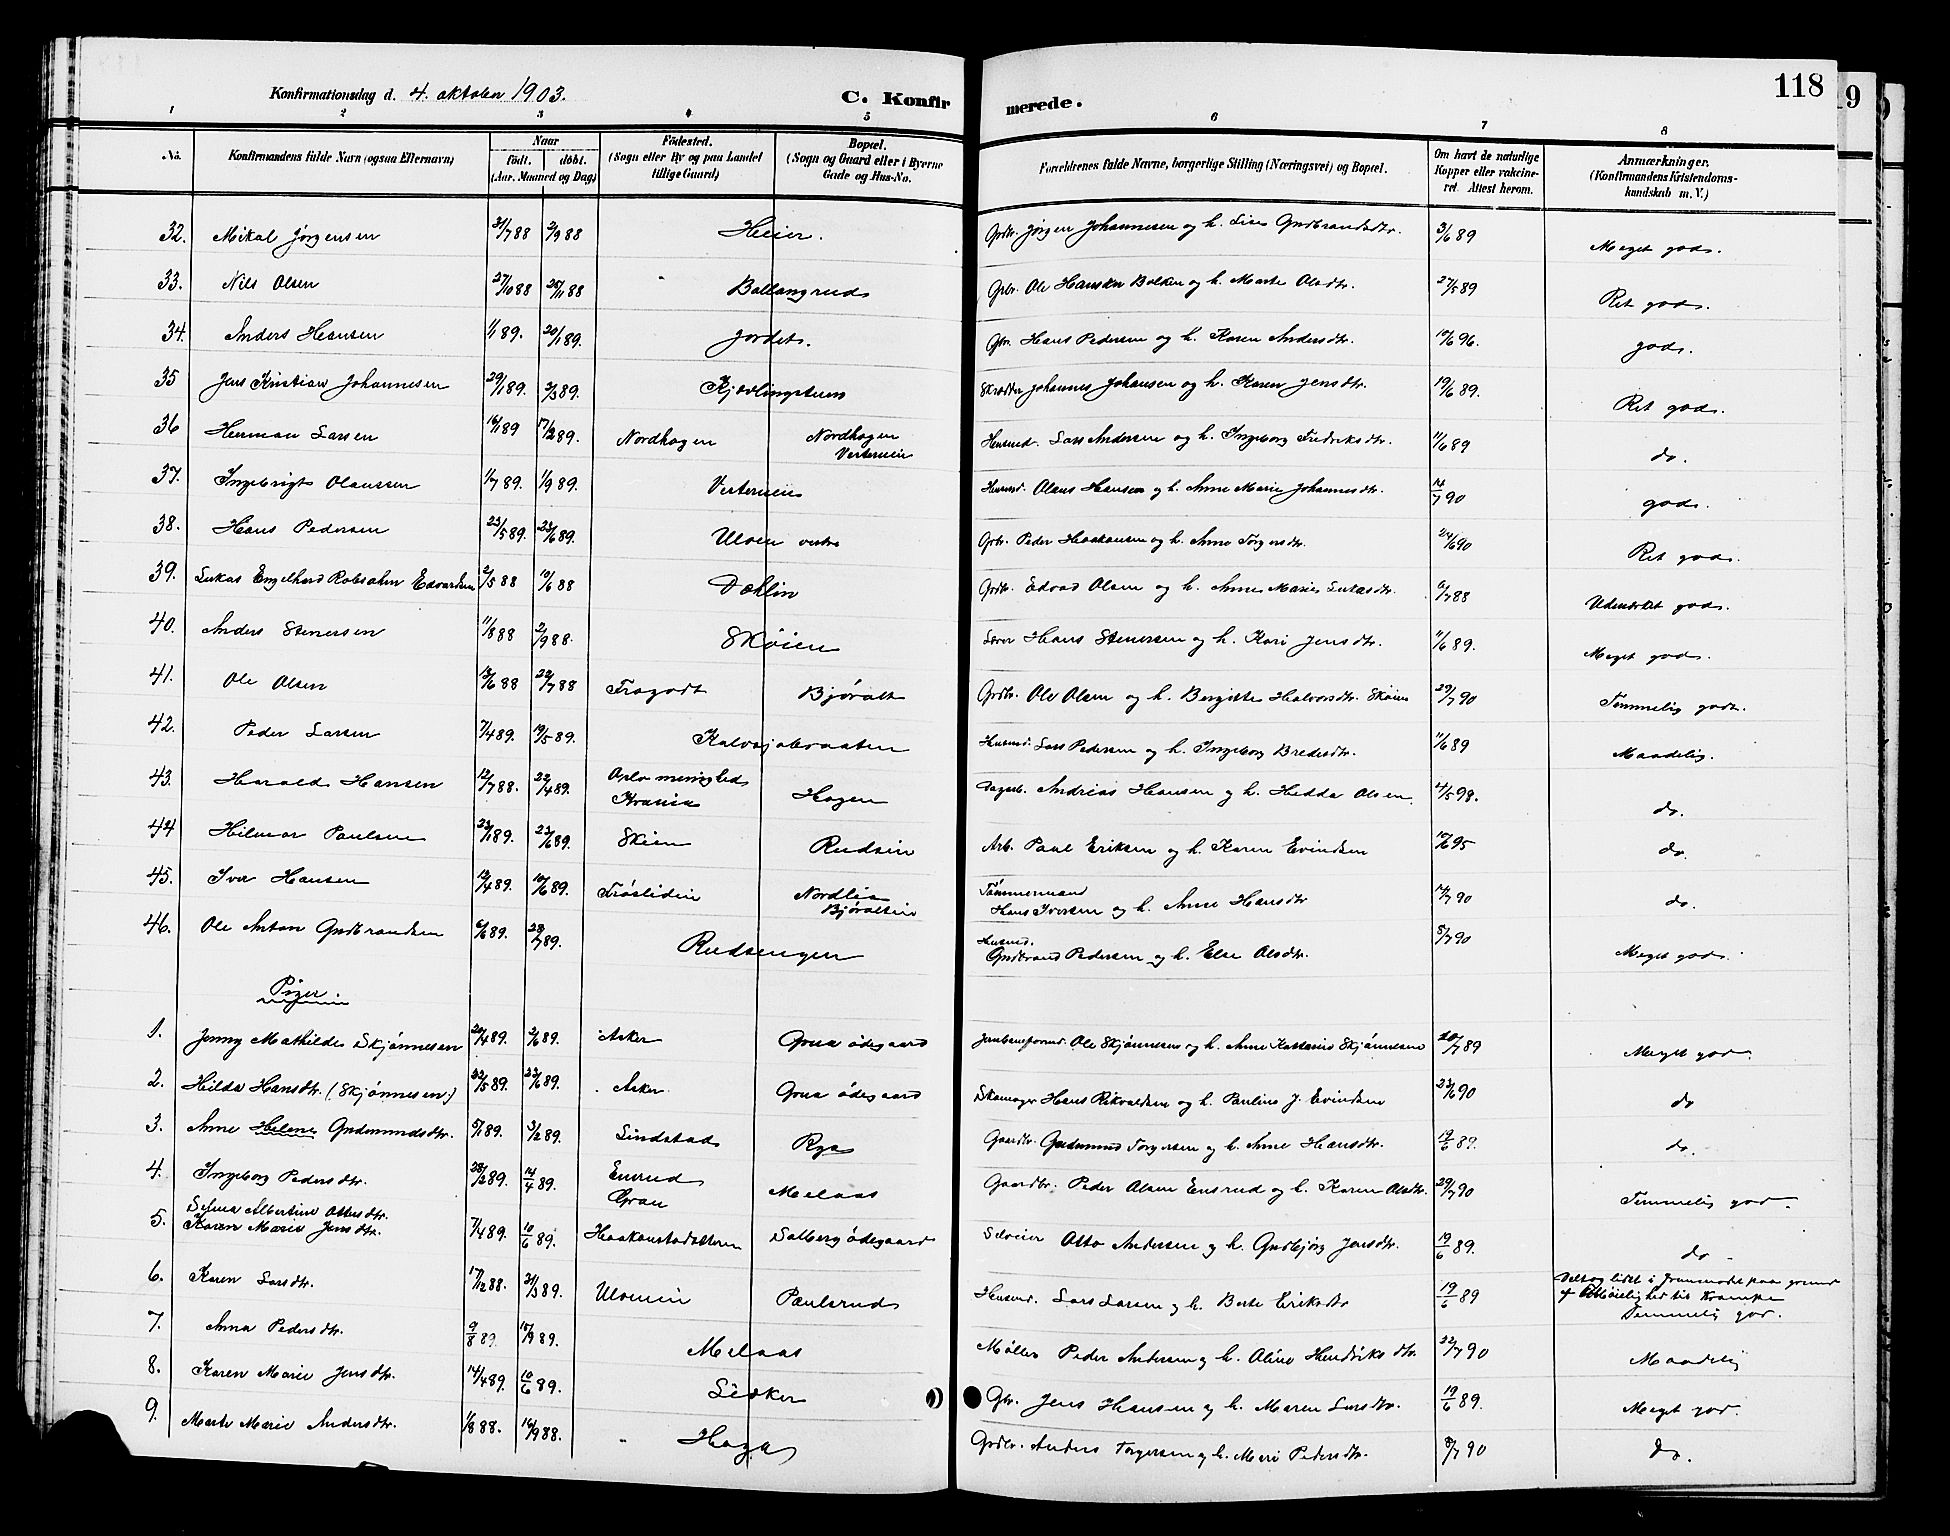 118
19
Konfirmationsdag d. 4. oktober 1903.
C. Konfirmerede.
1 2 3 4 5 6 7 8
No.
Konfirmandens fulde Navn (ogsaa Efternavn)
Naar
födt. döbt.
(Aar. Maaned og Dag)
Födested.
(Sogn eller By og paa Landet
tillige Gaard)
Bopæl.
(Sogn og Gaard eller i Byerne
Gade og Hus-No.
Forældrenes fulde Navne, borgerlige Stilling (Næringsvei) og Bopæl.
Om havt de naturlige
Kopper eller vakcine-
ret. Attest herom.
Anmærkninger.
(Konfirmandens Kristendoms-
kundskab m. V.)
32. Mikal Jørgensen 31/7 88 2/9 88 Heier. Grdbr. Jørgen Johannesen og h. Lise Gudbrandsdtr. 3/6 89 Meget god.
33. Nils Olsen 27/10 88 25/11 88 Ballangrud Gbr. Ole Hansen Balken og h. Marte Olsdtr. 27/5 89 Ret god.
34. Anders Hansen 1/1 89. 20/1 89. Jordet. Gbr. Hans Pedersen og h. Karen Andersdtr. 10/6 96. god.
35 Jens Kristian Johannesen 29/1 89. 3/3 89. Skrædder Johannes Johansen og h. Karen Jensdtr. 19/6 89. Ret god.
36 Herman Larsen 16/1 89 17/2 89. Nordhagen Nordhagen
Husmd. Lars Andersen og h. Ingeborg Fredriksdtr. 11/6 89 do.
37. Ingebrigt Olaussen 1/7 89. 1/9 89. Husmd. Olaus Hansen og h. Anne Marie Johannesdtr. 14/7 90 god.
38. Hans Pedersen 23/5 89. 23/6 89. Uloen vestre Gbr. Peder Haakensen og h. Anne Torgersdtr. 24/6 90 Ret god.
39. Lukas Engelhard Robsahm Edvardsen 2/5 88 10/6 88 Dæhlin Grdbr. Edvad Olsen og h. Anne Marie Lukasdtr. 6/7 88 Udmærket god.
40. Anders Stenersen 11/8 88 2/9 88. Skøien Hans Stenersen og h. Kari Jensdtr. 11/6 89. Meget god.
41. Ole Olsen 13/6 88 22/7 88 Fragodt Bjøralt Grdbr. Ole Olsen og h. Bergitte Halvorsdtr. Skøien 29/7 90 Temmelig godt.
42. Peder Larsen 7/4 89. 19/5 89. Kalvsjøbraaten Husmd. Lars Pedersen og h. Ingeborg Bredesdtr. 11/6 89 Maadelig.
43. Harald Hansen 12/7 88. 22/4 89. Oplo menighed
Krania Hagen Dagarb. Andreas Hansen og h. Hedda Olsen. 4/5 98. do.
44 Hilmar Paulsen 23/1 89. 23/6 89. Skien Rudsin Arb. Paul Eriksen og h. Karen Evindsen 10/6 95 do.
45. Iver Hansen 12/4 89. 10/6 89. Frøslidin Nordlia
Bjøraltin Tømmermand
Hans Iversen og h. Anne Hansdtr 14/7 90 do.
46. Ole Anton Gudbrandsen 6/6 89. 28/7 89. Rudsengen Husmd.
Gudbrand Pedersen og h. Else Olsdtr. 8/7 90 Meget god.
Piger
1. Jenny Mathilde Skjønnesen 20/4 89. 2/6 89. Asker Grua ødegaard Ole Skjønnesen og h. Anne Katharine Skjønnesen 20/7 89 Meget god
2. Hilda Hansdtr. (Skjønnesen) 22/5 89. 23/6 89. Asker Grua ødegaard Skomager Hans Rikvaldsen og h. Pauline J. Evindsen 23/6 90 do
3. Anne Helene Gudmundsdtr. 5/1 89. 3/2 89. Lindstad Rya Gaardbr. Gudmund Torgersen og h. Anne Hansdtr. 19/6 89. do.
4. Ingeborg Pedersdtr. 28/2 89. 14/4 89. Ensrud
Gran Melaas Gaardbr. Peder Olsen Ensrud og h. Karen Olsdtr. 29/7 90 Temmelig god.
Selma Albertine Ottosdtr.
5. Karen Marie Jensdtr. 7/4 89. 10/6 89. Solberg ødegaard Selveier Otto Andersen og h. Gudbjørg Jensdtr. 19/6 89. do.
6. Karen Larsdtr. 17/12 88. 31/3 89. Uloenin Paulsrud Husmd. Lars Larsen og h. Berte Eriksdtr 19/6 89 Deltog lidet i paa grund
af tilbøielighed til Krampe
Temmelig god.
7. Anna Pedersdtr. 9/8 89. 15/9 89. Melaas Møller Peder Andersen og h. Oline Hendriksdtr. 22/7 90 Maadelig
8. Karen Marie Jensdtr. 14/4 89. 10/6 89. Gbr. Jens Hansen og h. Maren Larsdtr. 19/6 89. Meget god.
9. Marte Marie Andersdtr. 1/8 88. 16/9 88. Haga Grdbr. Anders Torgersen og h. Mari Pedersdtr. 8/7 90 do.